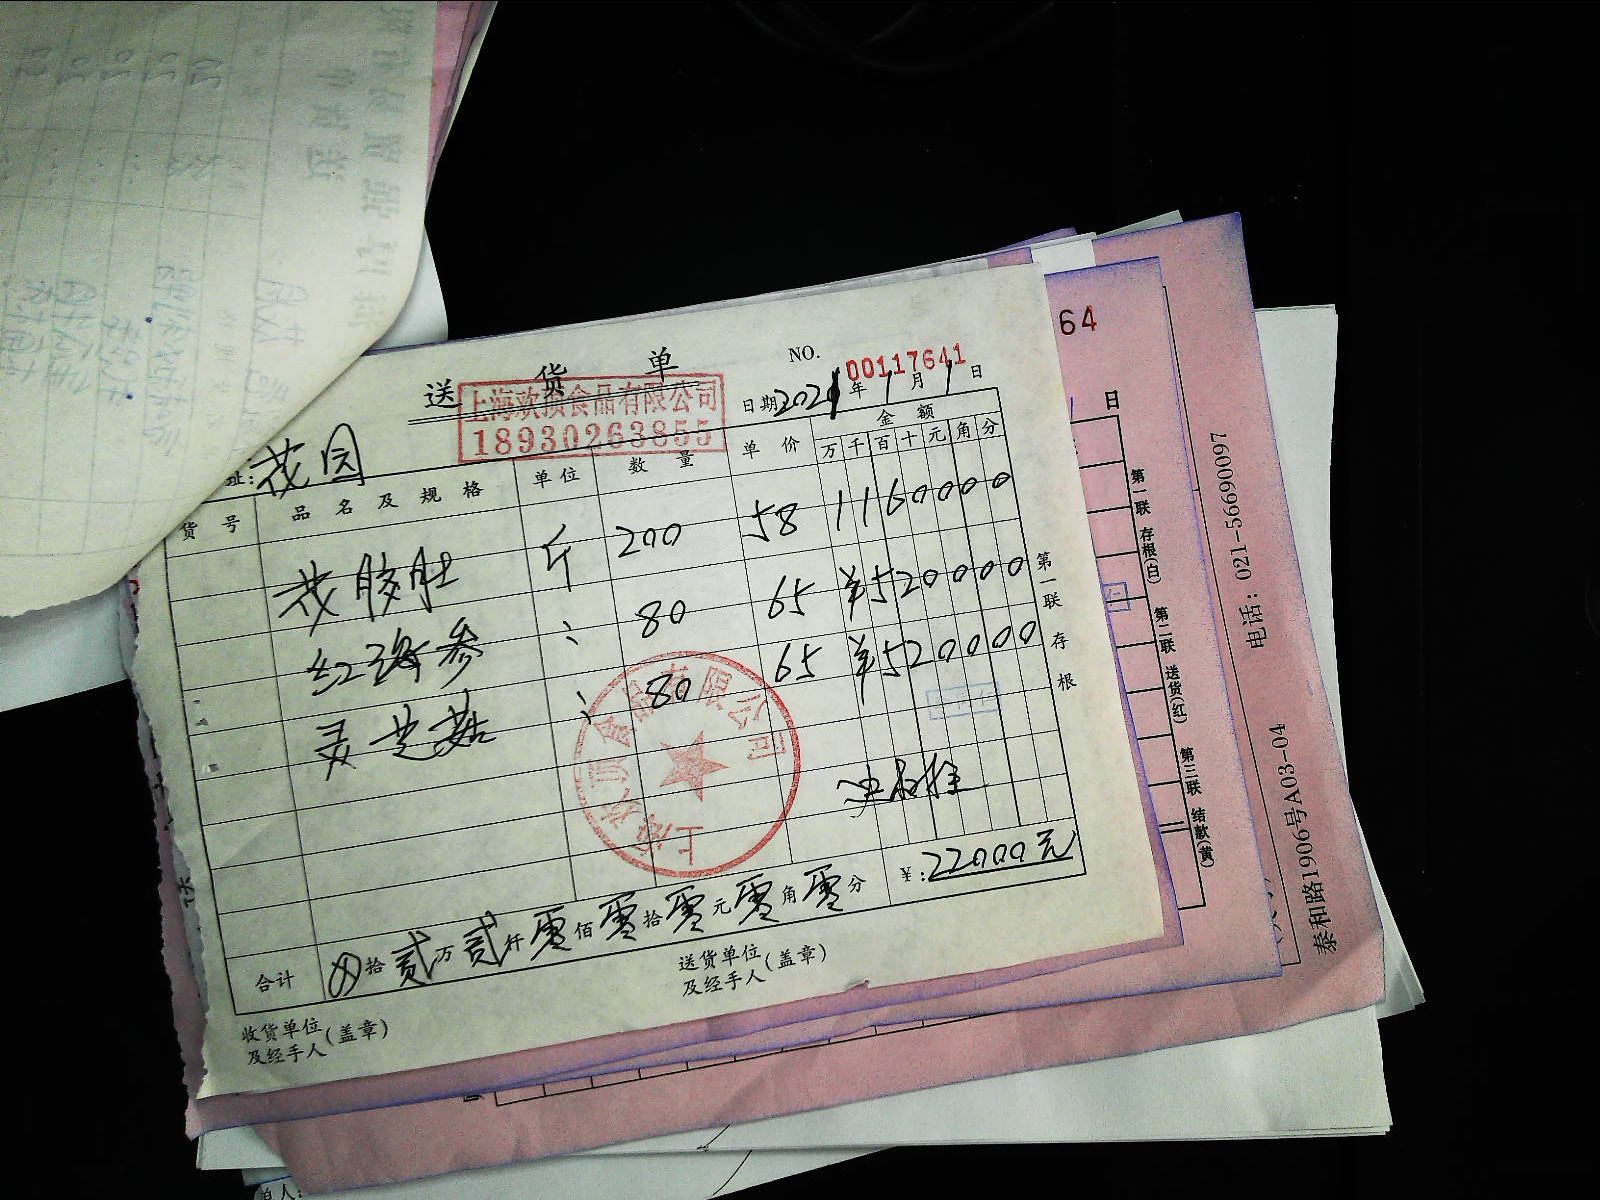 送货单
NO. 00117641
上海欢顶食品有限公司
18930263855
日期2021年1月1日
址:花园
货号 品名及规格 单位 数量 单价 金额
万千百十元角分
花胶肚 斤 200 58 1160000
红海参 〃 80 65 ¥520000
灵芝菇 〃 80 65 ¥520000
上海欢顶食品有限公司
合计 ⊗拾贰万贰仟零佰零拾零元零角零分 ¥:22000元
收货单位及经手人(盖章)
送货单位及经手人(盖章)
第一联 存根
64
日
第一联 存根(白) 第二联 送货(红) 第三联 结款(黄)
电话:021-56690097
泰和路1906号A03-04
单人: